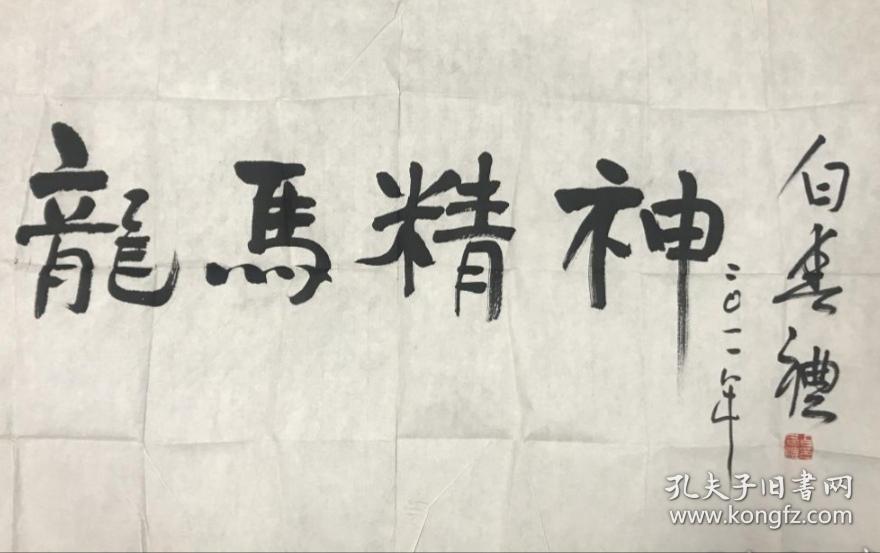 龍馬精神
二〇一一年
白春禮
孔夫子旧书网
www.kongfz.com